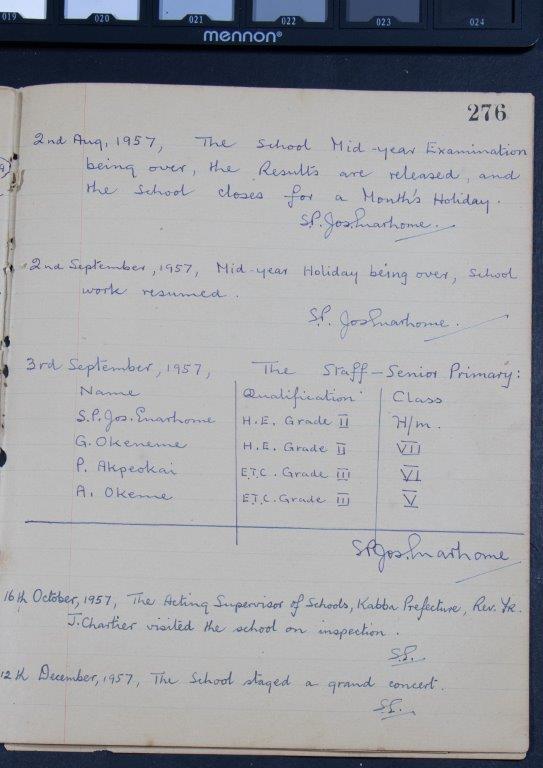 019 020 021 022 023 024
mennon®
276
2nd Aug, 1957, The School Mid-year Examination
being over, the Results are released, and
the School closes for a Month's Holiday.
S.P. Jos. Enarhome.
2nd September, 1957, Mid-year Holiday being over, School
work resumed.
S.P. Jos Enarhome.
3rd September, 1957, The Staff - Senior Primary:
Name Qualification Class
S.P. Jos. Enarhome H.E. Grade II H/m.
G. Okeneme H.E. Grade II VII
P. Akpeokai E.T.C. Grade III VI
A. Okeme E.T.C. Grade III V
S.P. Jos. Enarhome
16th October, 1957, The Acting Supervisor of Schools, Kabba Prefecture, Rev. Fr.
J. Chartier visited the school on inspection.
12th December, 1957, The School staged a grand concert.